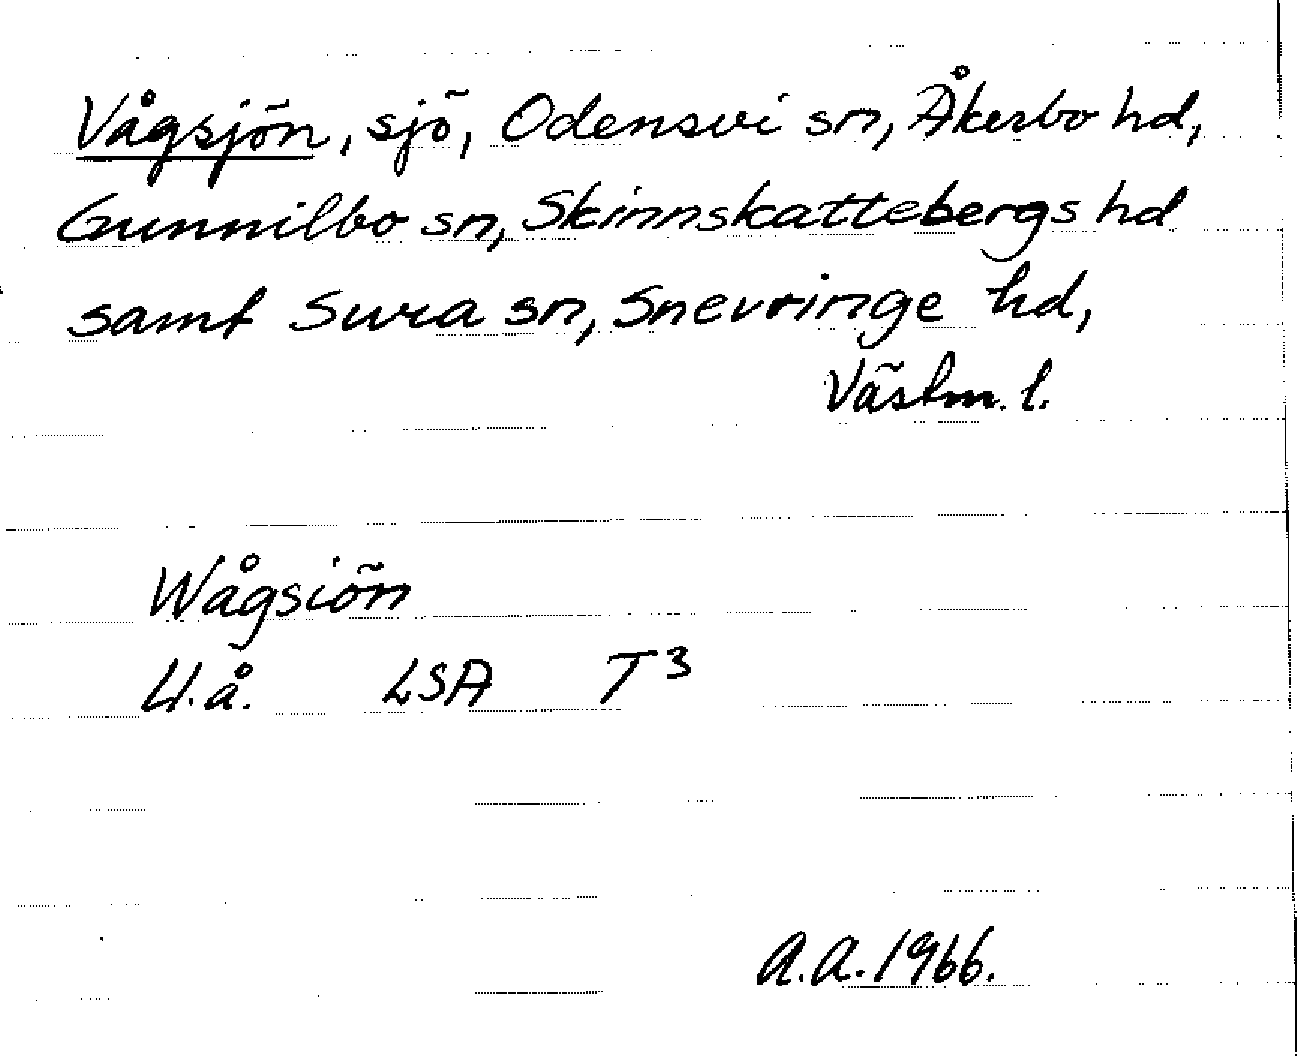 Vågsjön, sjö, Odensvi sn, Åkerbo hd,
Gunnilbo sn, Skinnskattebergs hd
samt Sura sn, Snevringe hd,
Västm. l.
Wågsiön
U.å. LSA T³
A.A. 1966.